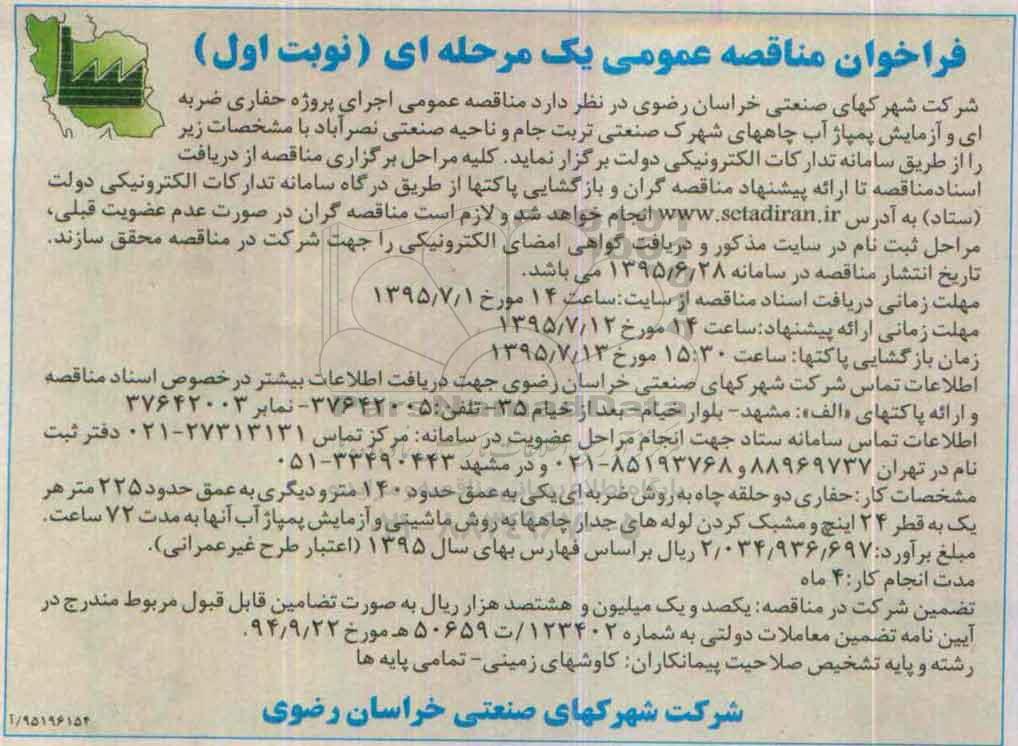 فراخوان مناقصه عمومی یک مرحله ای (نوبت اول)
شرکت شهرکهای صنعتی خراسان رضوی در نظر دارد مناقصه عمومی اجرای پروژه حفاری ضربه
ای و آزمایش پمپاژ آب چاههای شهرک صنعتی تربت جام و ناحیه صنعتی نصرآباد با مشخصات زیر
را از طریق سامانه تدارکات الکترونیکی دولت برگزار نماید. کلیه مراحل برگزاری مناقصه از دریافت
اسنادمناقصه تا ارائه پیشنهاد مناقصه گران و بازگشایی پاکتها از طریق درگاه سامانه تدارکات الکترونیکی دولت
(ستاد) به آدرس www.setadiran.ir انجام خواهد شد و لازم است مناقصه گران در صورت عدم عضویت قبلی،
مراحل ثبت نام در سایت مذکور و دریافت گواهی امضای الکترونیکی را جهت شرکت در مناقصه محقق سازند.
تاریخ انتشار مناقصه در سامانه ۱۳۹۵/۶/۲۸ می باشد.
مهلت زمانی دریافت اسناد مناقصه از سایت:ساعت ۱۴ مورخ ۱۳۹۵/۷/۱
مهلت زمانی ارائه پیشنهاد:ساعت ۱۴ مورخ ۱۳۹۵/۷/۱۲
زمان بازگشایی پاکتها: ساعت ۱۵:۳۰ مورخ ۱۳۹۵/۷/۱۳
اطلاعات تماس شرکت شهرکهای صنعتی خراسان رضوی جهت دریافت اطلاعات بیشتر درخصوص اسناد مناقصه
و ارائه پاکتهای «الف»: مشهد- بلوار خیام- بعد از خیام ۳۵- تلفن:۳۷۶۴۲۰۰۵- نمابر ۳۷۶۴۲۰۰۳
اطلاعات تماس سامانه ستاد جهت انجام مراحل عضویت در سامانه: مرکز تماس ۲۷۳۱۳۱۳۱-۰۲۱ دفتر ثبت
نام در تهران ۸۸۹۶۹۷۳۷ و ۸۵۱۹۳۷۶۸-۰۲۱ و در مشهد ۳۳۴۹۰۴۴۳-۰۵۱
مشخصات کار:حفاری دو حلقه چاه به روش ضربه ای یکی به عمق حدود ۱۴۰ متر و دیگری به عمق حدود ۲۲۵ متر هر
یک به قطر ۲۴ اینچ و مشبک کردن لوله های جدار چاهها به روش ماشینی و آزمایش پمپاژ آب آنها به مدت ۷۲ ساعت.
مبلغ برآورد:۲/۰۳۴/۹۳۶/۶۹۷ ریال براساس فهارس بهای سال ۱۳۹۵ (اعتبار طرح غیرعمرانی).
مدت انجام کار:۴ ماه
تضمین شرکت در مناقصه: یکصد و یک میلیون و هشتصد هزار ریال به صورت تضامین قابل قبول مربوط مندرج در
آیین نامه تضمین معاملات دولتی به شماره ۱۲۳۴۰۲/ت ۵۰۶۵۹ هـ مورخ ۹۴/۹/۲۲.
رشته و پایه تشخیص صلاحیت پیمانکاران: کاوشهای زمینی- تمامی پایه ها
شرکت شهرکهای صنعتی خراسان رضوی
۹۵۱۹۶۱۵۴/آ